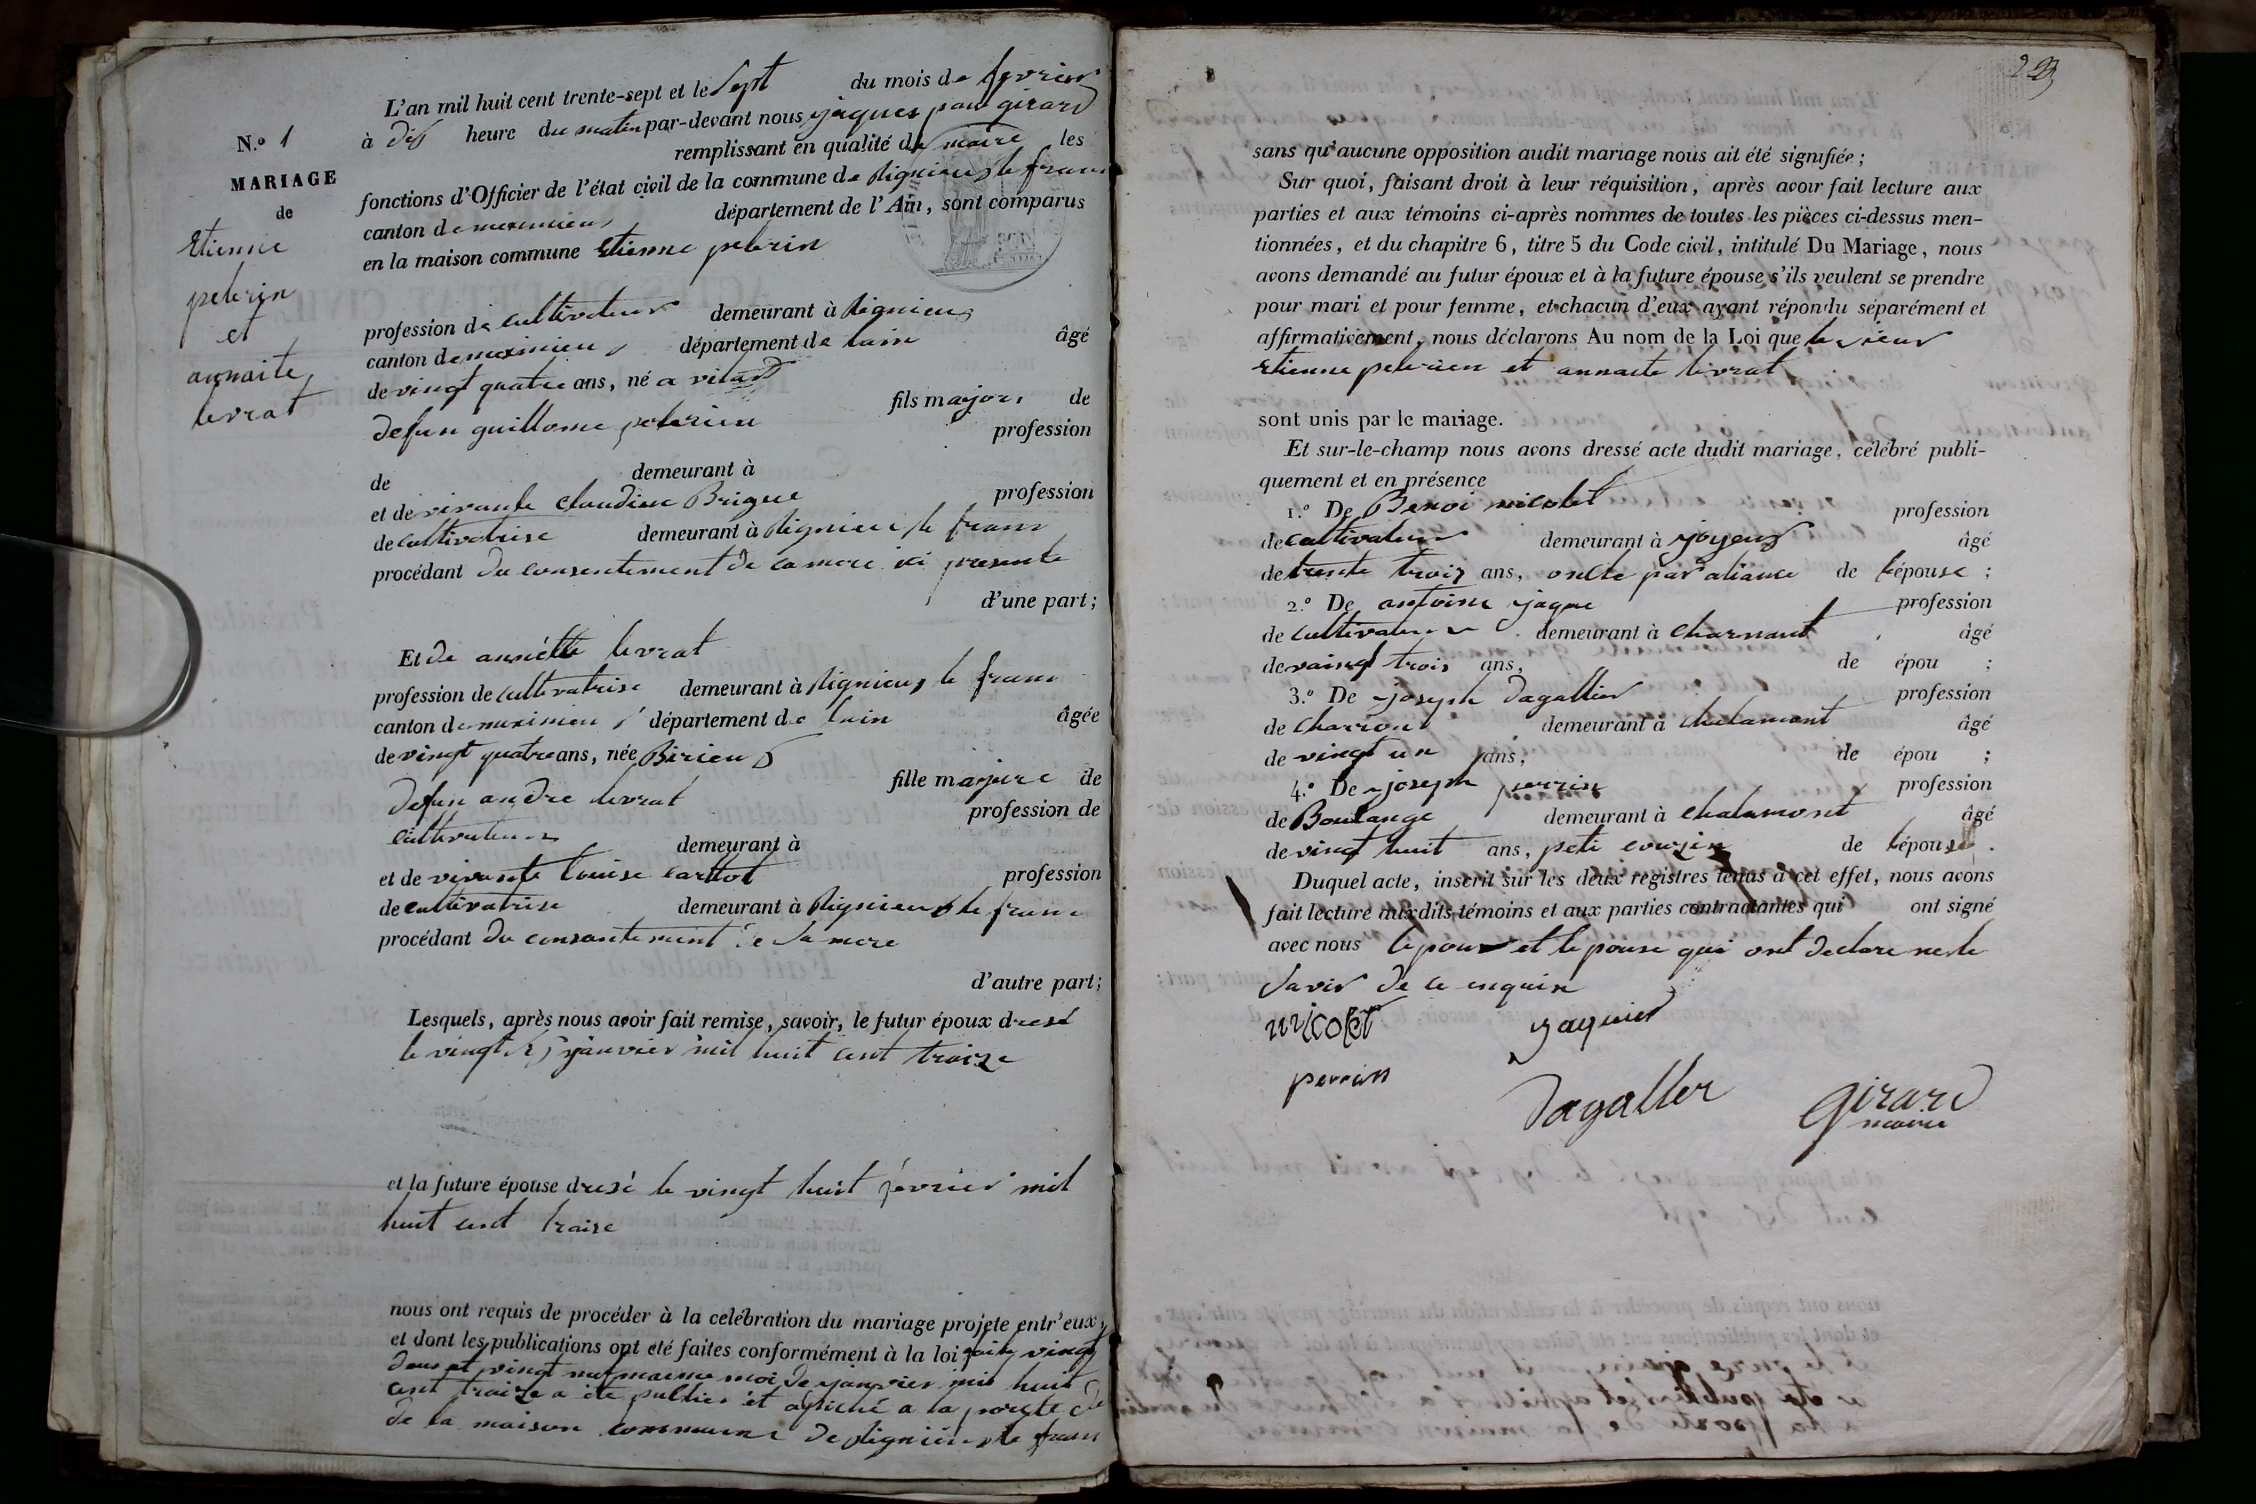 N.º 1
MARIAGE
de
Etienne
pelerin
et
annaite
levrat
L'an mil huit cent trente-sept et le Sept du mois de fevrier
à dis heure du matin par-devant nous jaques paul girard
remplissant en qualité de maire les
fonctions d'Officier de l'état civil de la commune de Rignieux le franc
canton de meximieux département de l'Ain, sont comparus
en la maison commune Etienne pelerin
profession de cultivateur demeurant à Rignieux
canton de meximieu département de lain âgé
de vingt quatre ans, né a
defun guillome pelerien fils majour de
profession
de demeurant à
et de vivante claudine Brigue profession
de cultivatrise demeurant à Rignieu le franc
procédant du consentement de samere ici presente
d'une part;
Et de annéte levrat
profession de cultivatrise demeurant à Rignieux le franc
canton de meximieu département de lain âgée
de vingt quatre ans, née Birieux
fille majure de
defun andre levrat profession de
cultivateur
demeurant à
et de vivante louise profession
de cultivatrise demeurant à Rignieux le franc
procédant du consantement de sa mere
d'autre part;
Lesquels, après nous avoir fait remise, savoir, le futur époux dresé
le vingt janvier mil huit cent traize
et la future épouse dresé le vingt huit fevrier mil
huit cent traise
nous ont requis de procéder à la celébration du mariage projete entr'eux,
et dont les publications ont été faites conformément à la loi faite vingt
deux et vingt neuf maime moi de janvier mil huit
cent traize a éte publier et afiché a la porte de
de la maison commune de Rignieux le franc
223
sans qu'aucune opposition audit mariage nous ait été signifiée;
Sur quoi, faisant droit à leur réquisition, après avoir fait lecture aux
parties et aux témoins ci-après nommes de toutes les pièces ci-dessus men-
tionnées, et du chapitre 6, titre 5 du Code civil, intitulé Du Mariage, nous
avons demandé au futur époux et à la future épouse s'ils veulent se prendre
pour mari et pour femme, et chacun d'eux ayant répondu séparément et
affirmativement, nous déclarons Au nom de la Loi que le sieur
Etienne pelerien et annaite levrat
sont unis par le mariage.
Et sur-le-champ nous avons dressé acte dudit mariage, célébré publi-
quement et en présence
1.º De Benoi nicolet profession
de cultivateur demeurant à joyeux âgé
de trente trois ans, oncle par aliance de lépouse;
2.º De antoine jaque profession
de cultivateur demeurant à charnaut âgé
de vaingt trois ans, de épou ;
3.º De joseph dagallier profession
de charron demeurant à chalamont âgé
de vingt un ans, de épou ;
4.º De joseph perrin profession
de Boulange demeurant à chalamont âgé
de vingt huit ans, peti couzin de lépouse.
Duquel acte, inscrit sur les deux registres tenus à cet effet, nous avons
fait lecture auxdits témoins et aux parties contractantes qui ont signé
avec nous lepour et lepouse qui ont declare nele
savir de ce enquir
nicolet jaquier
perrin
Dagallier Girard
maire